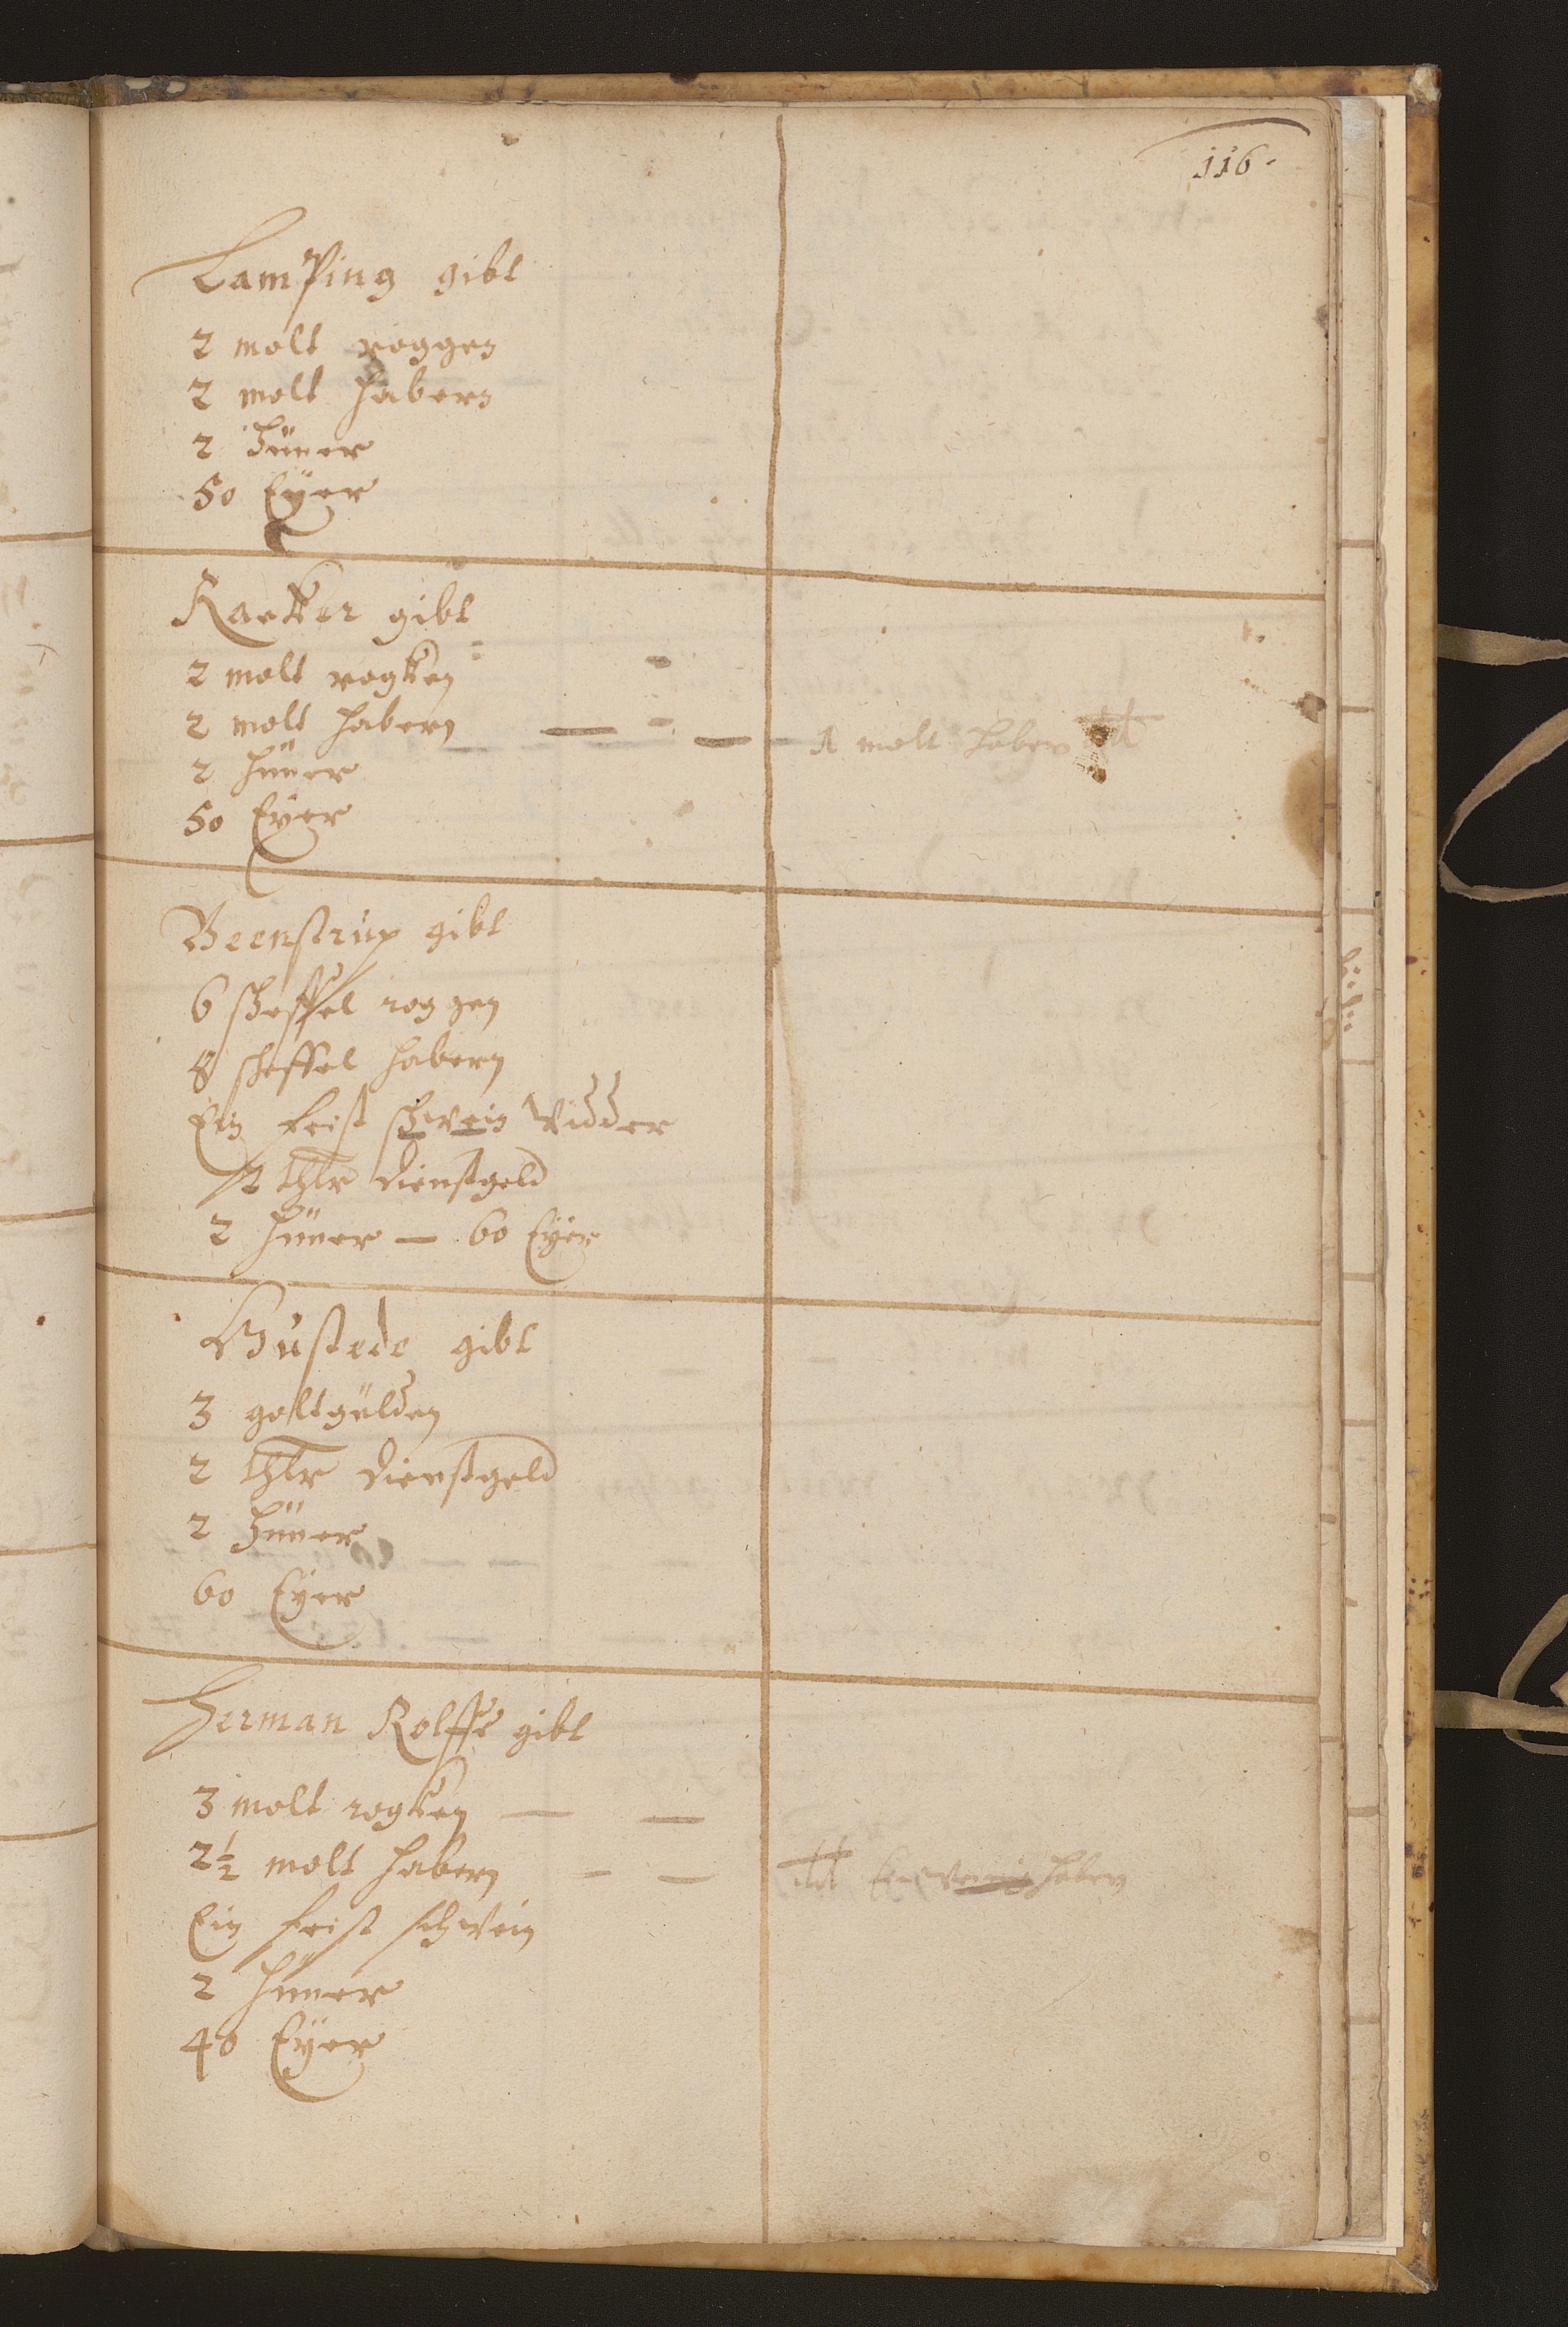 116.
Lamping gibt
2 molt roggen
2 molt habern
2 hüner
50 Eyer
Karkker gibt
2 molt rogken
2 molt habern — — 1 molt haber dt
2 hüner
50 Eyer
Beenstrup gibt
6 scheffel roggen
8 scheffel habern
Ein feist schwein widder
2 thlr dienstgeld
2 hüner — 60 Eyer
Bustede gibt
3 goltgülden
2 thlr dienstgeld
2 hüner
60 Eyer
Herman Rolffs gibt
3 molt rogken — —
2½ molt habern — — dt habern
Ein feist schwein
2 hüner
40 Eyer